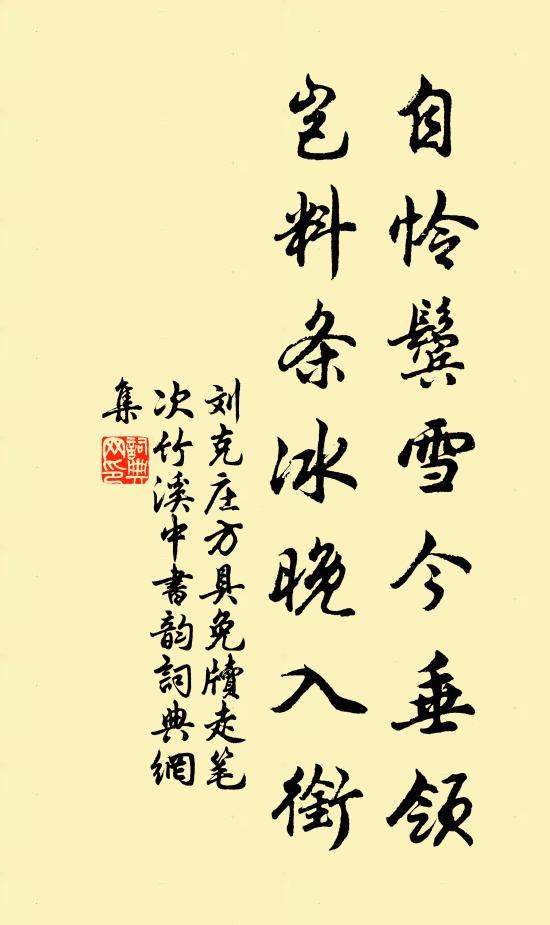 自怜鬓雪今垂领
岂料条冰晚入衔
刘克庄方具免牍走笔
次竹溪中书韵詞典網
集
詞典網印